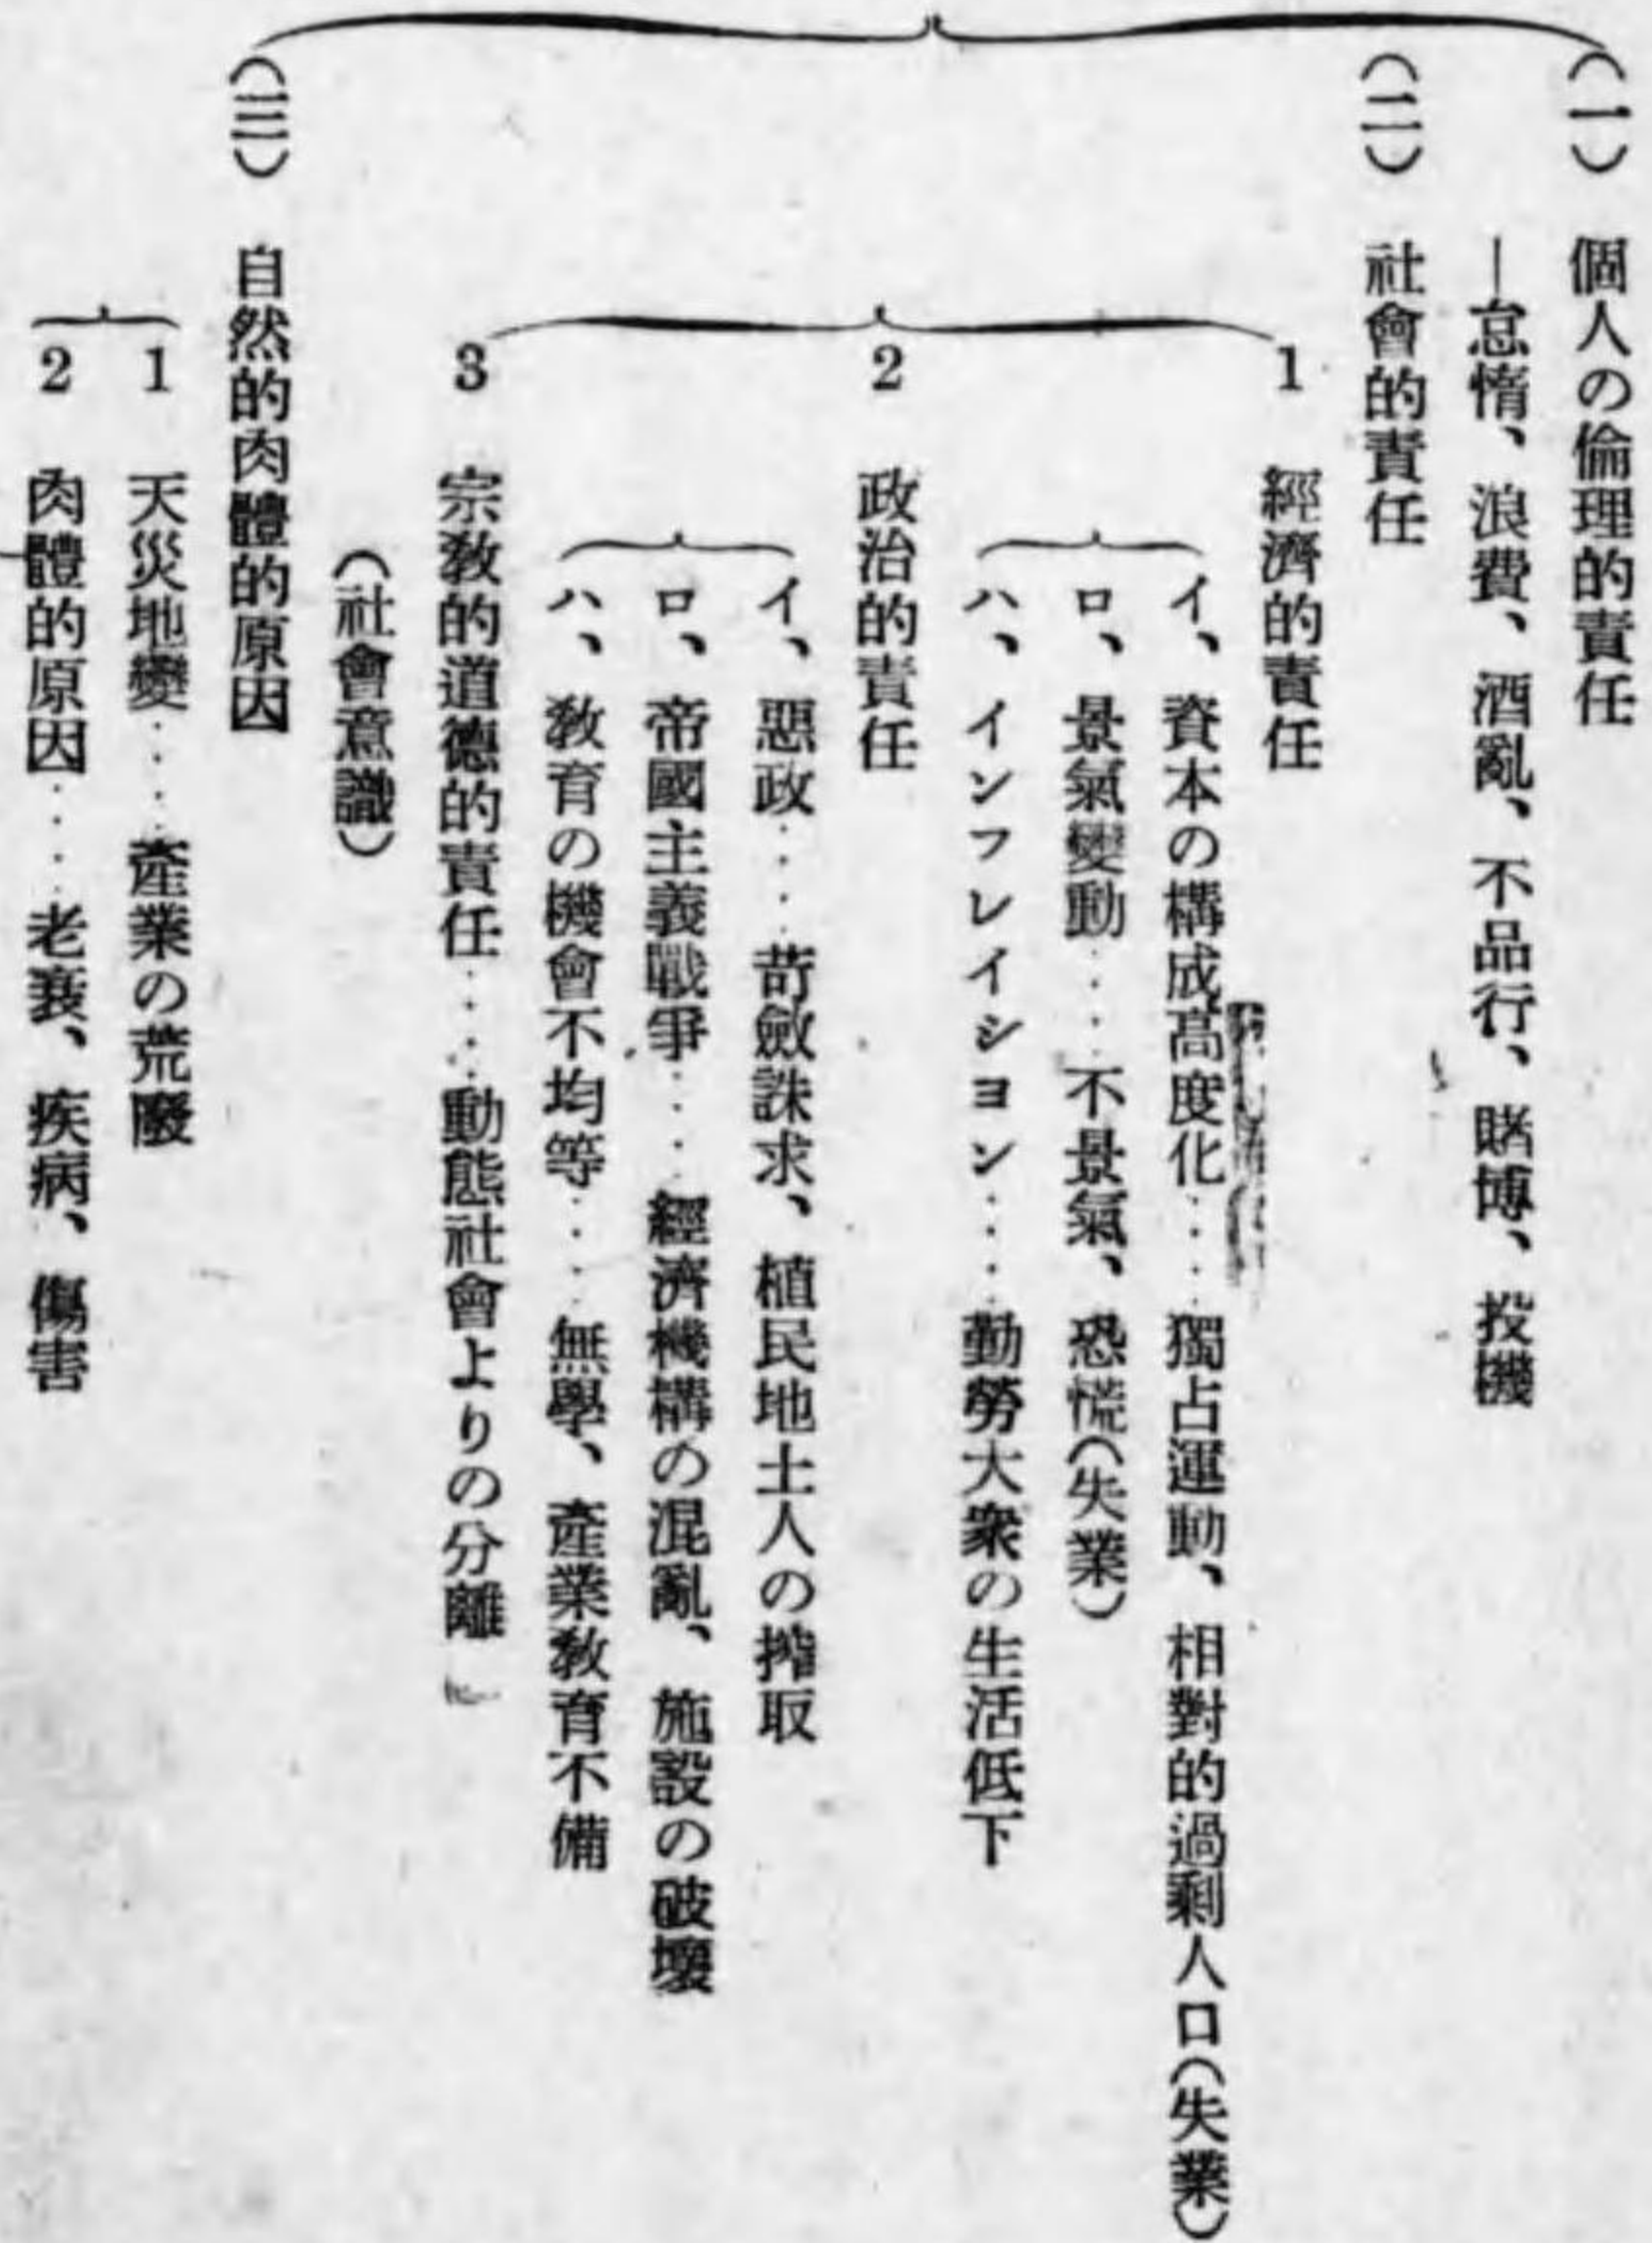 (一) 個人の倫理的責任
―怠惰、浪費、酒亂、不品行、賭博、投機
(二) 社會的責任
1 經濟的責任
イ、資本の構成高度化‥‥獨占運動、相對的過剩人口(失業)
ロ、景氣變動‥‥不景氣、恐慌(失業)
ハ、インフレイシヨン‥‥勤勞大衆の生活低下
2 政治的責任
イ、惡政‥‥苛斂誅求、植民地土人の搾取
ロ、帝國主義戰爭‥‥經濟機構の混亂、施設の破壞
ハ、敎育の機會不均等‥‥無學、產業敎育不備
3 宗敎的道德的責任‥‥動態社會よりの分離
(社會意識)
(三) 自然的肉體的原因
1 天災地變‥‥產業の荒廢
2 肉體的原因‥‥老衰、疾病、傷害